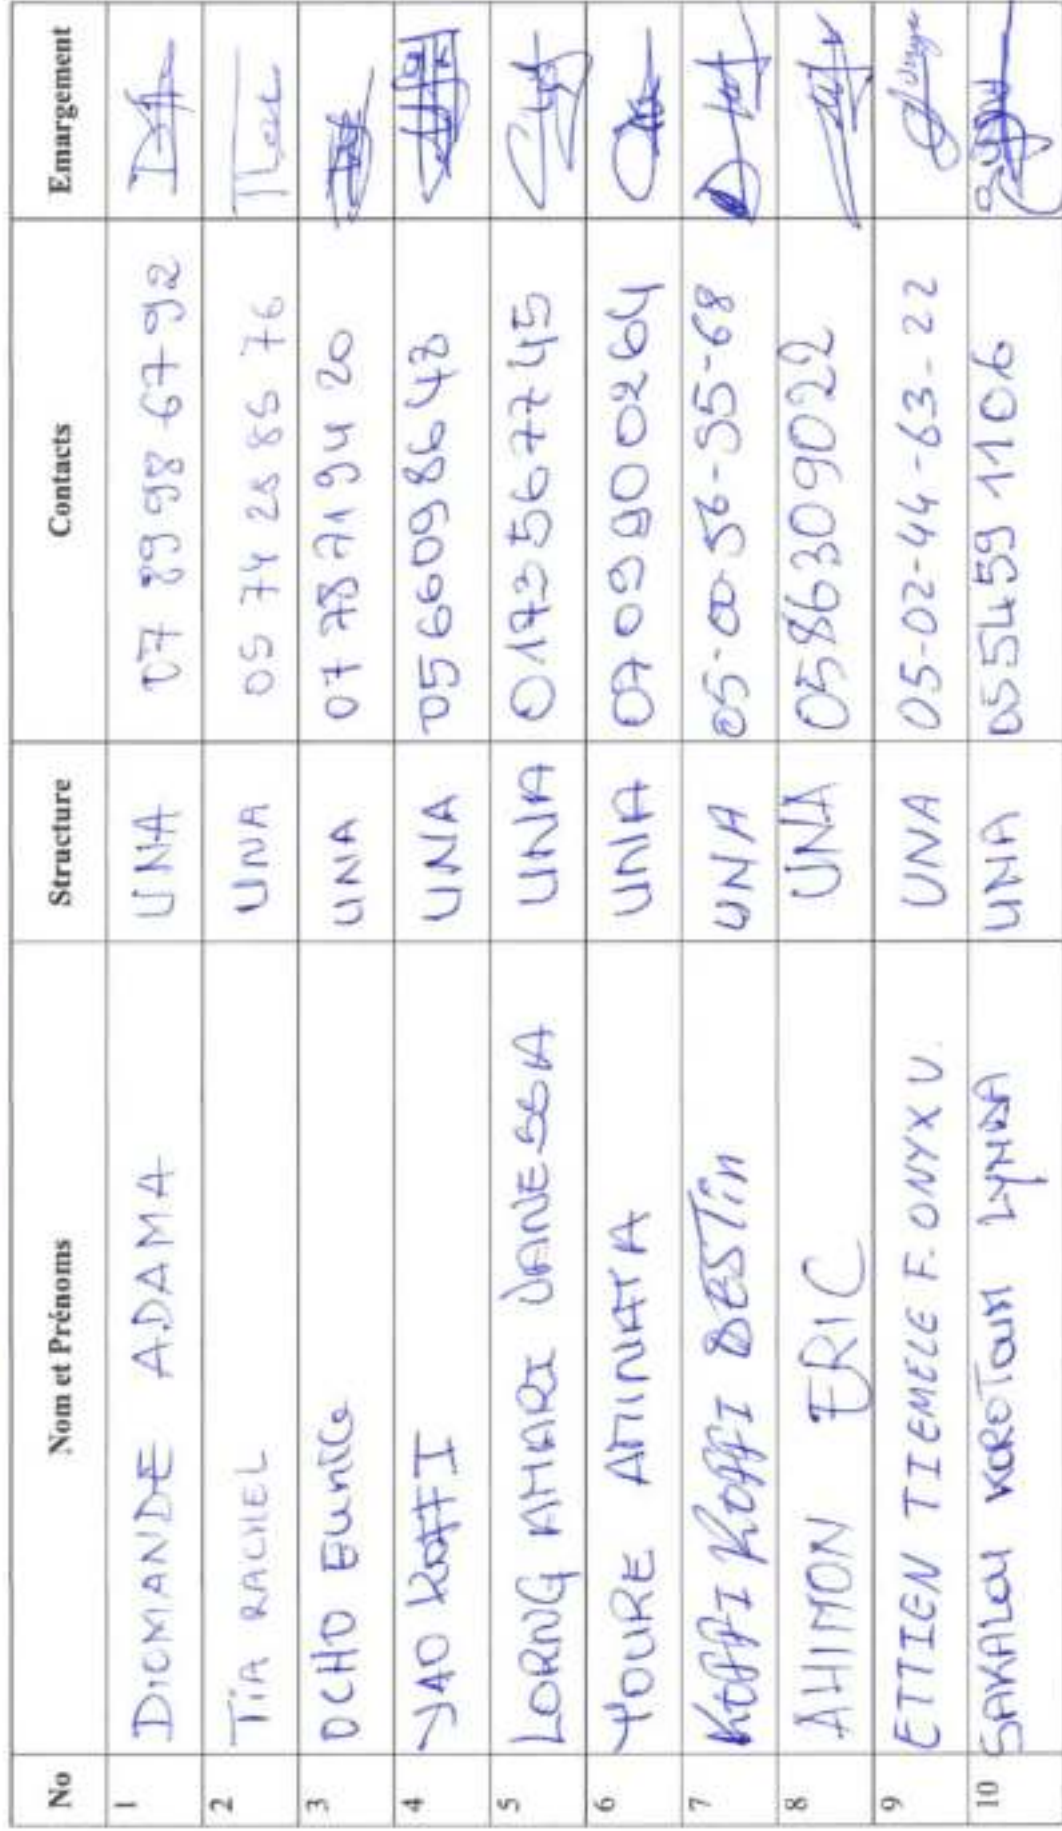 No Nom et Prénoms Structure Contacts Emargement
1 DIOMANDE ADAMA UNA 07 89 98 67 92
2 TiA RACHEL UNA 05 74 28 86 76
3 OCHO EUNICE UNA 07 78 71 94 20
4 YAO KOFFI UNA 05 66 09 86 48
5 LORNG AMARI VANESSA UNA 0173567745
6 TOURE AMINATA UNA 0709900264
7 KOFFI KOFFI DESTin UNA 05-00-56-55-68
8 AHIMON ERIC UNA 0586309022
9 ETTIEN TIEMELE F. ONYX U. UNA 05-02-44-63-22
10 SAKALOU KOROTOUM LYNDA UNA 0554591106